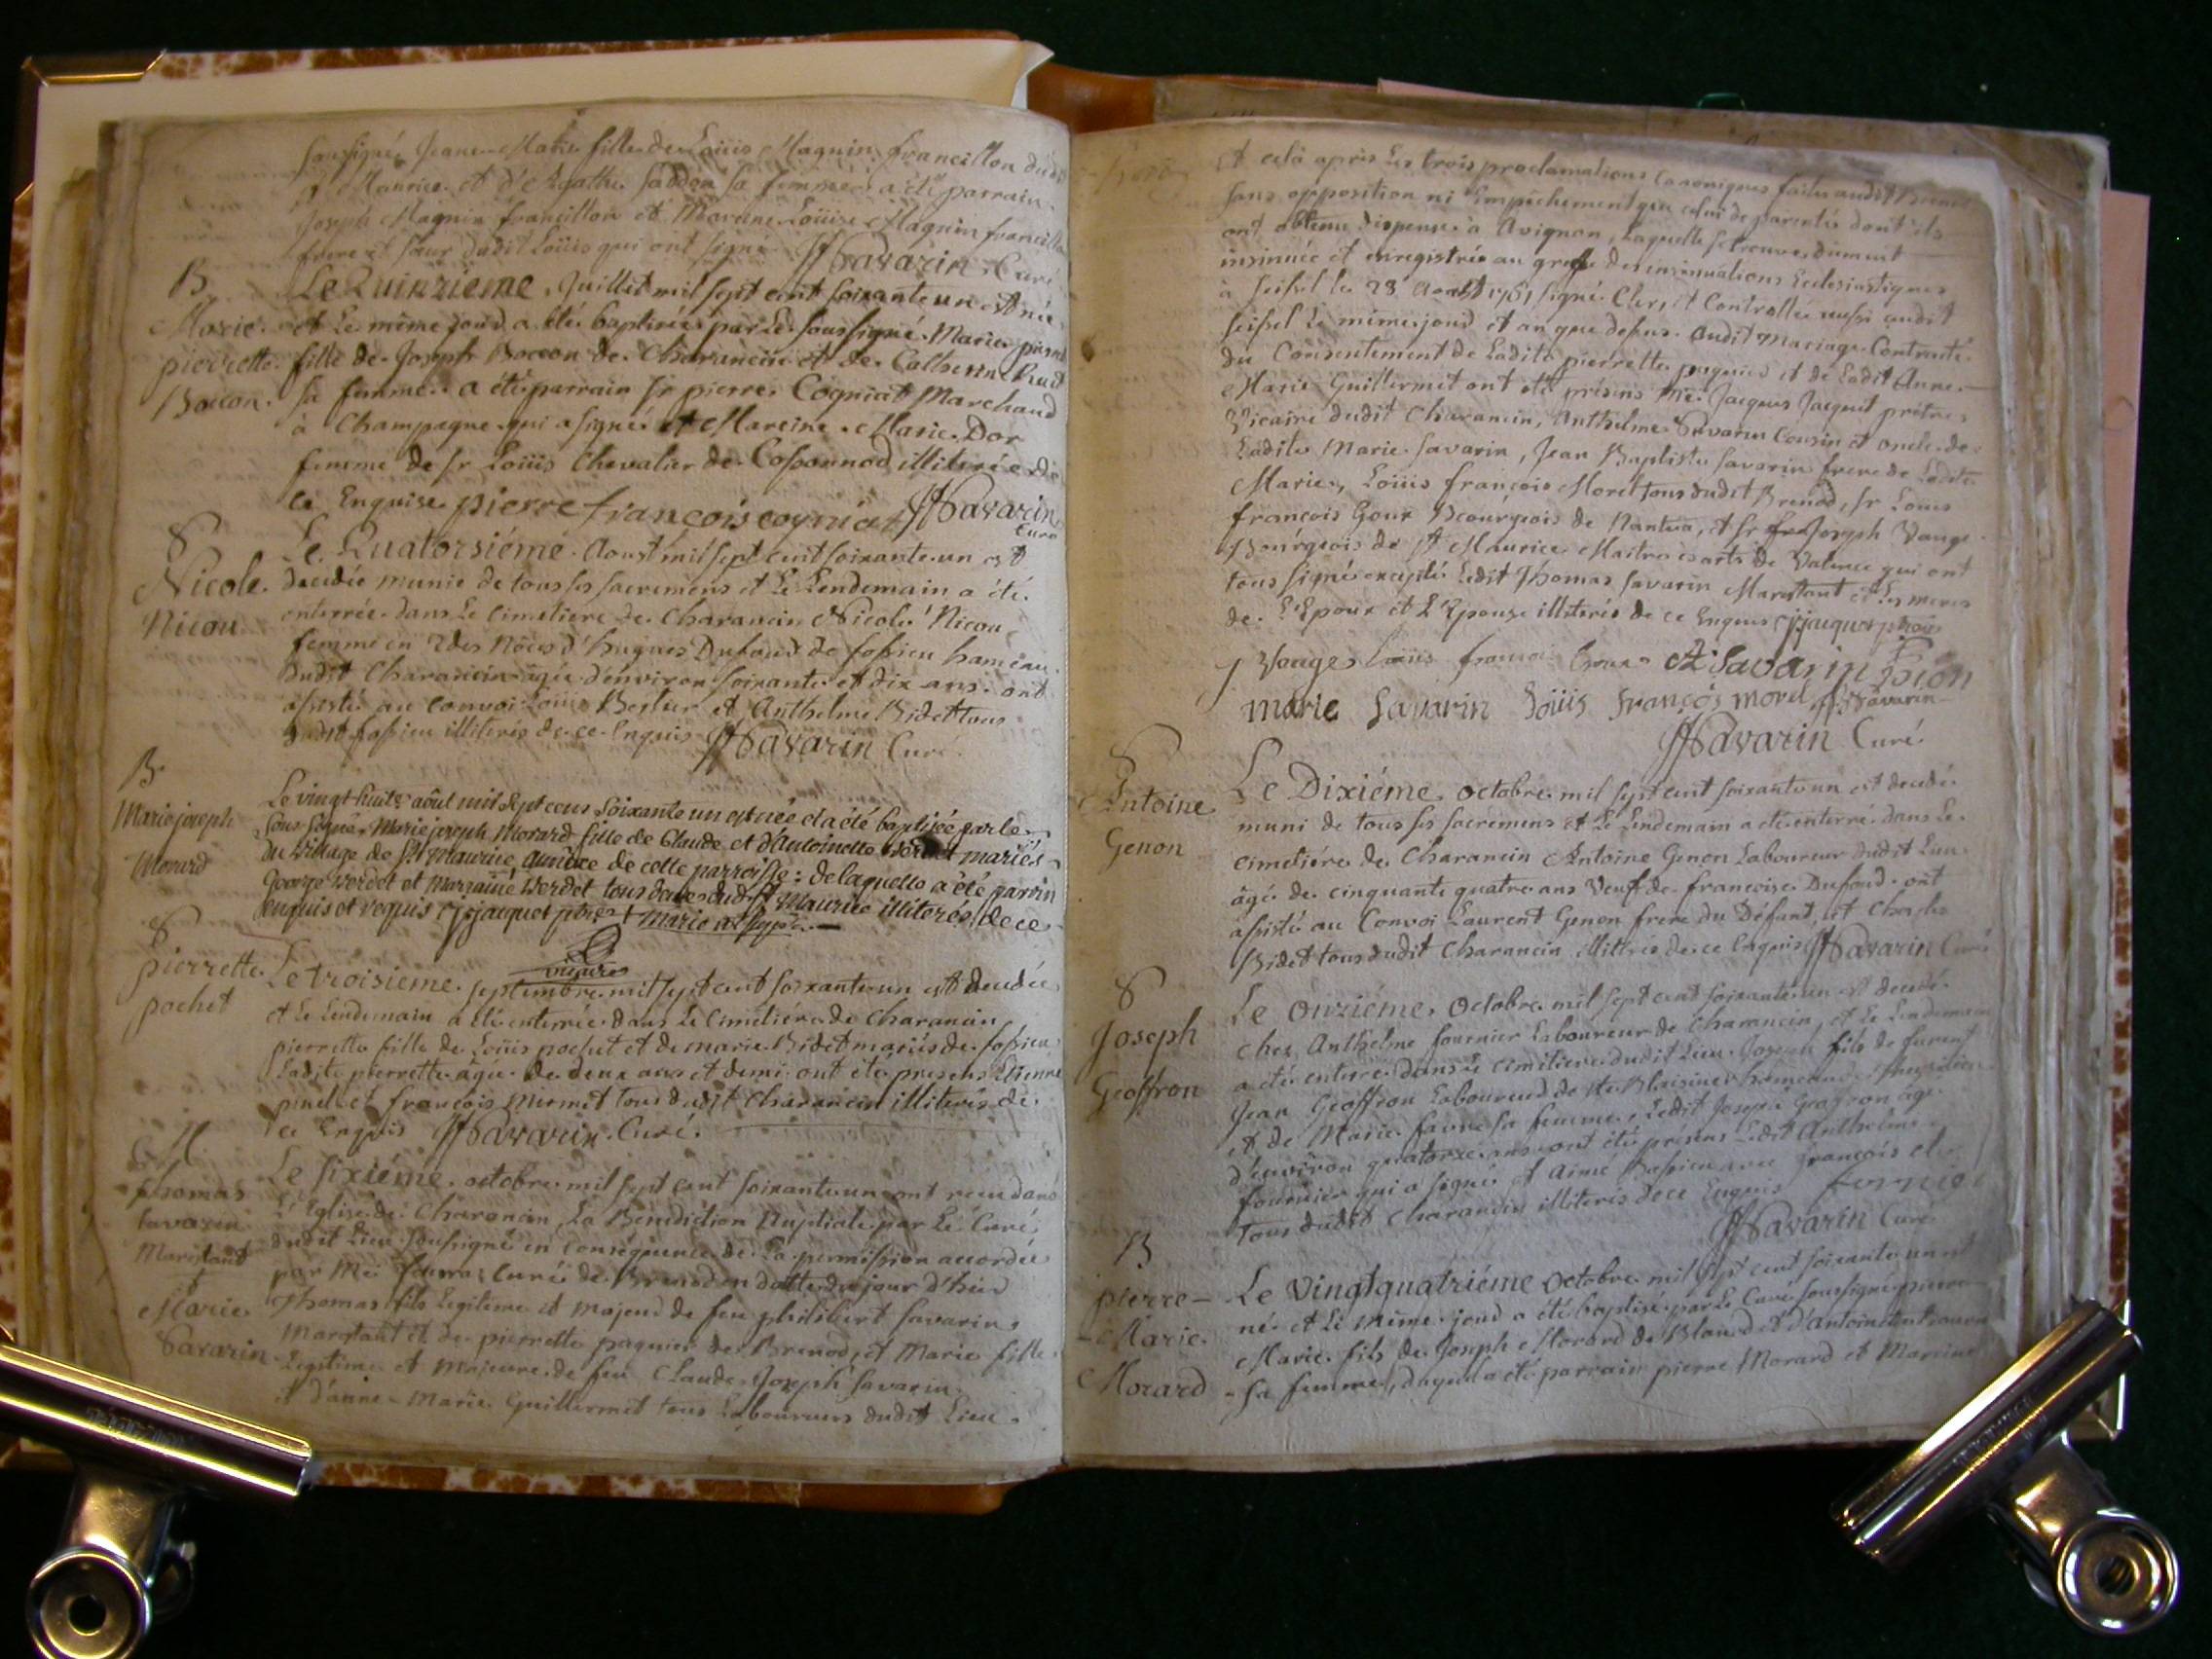 soussigné Jeane Marie fille de Loüis Magnin francillon dudt
St Maurice et d'Agathe sa femme a été parrain
Joseph Magnin francillon et Mareine Loüise Magnin francillon
frere et sœur dudit Loüis qui ont signé JfSavarin Curé
B
Marie
pierrette
Boccon
Le Quinzieme Juillet mil sept cent soixante un est née
et le même jour a été baptisée par le soussigné Marie pierrette
fille de Joseph Boccon de Charancin et de Catherine
sa femme a été parrain sr pierre Cogniat Marchand
à Champagne qui a signé et Mareine Marie Dor
femme de sr Loüis Chevalier de Cossonnod illiterée de
ce Enquise pierre françois cogniat JfSavarin
Curé
S
Nicole
Nicou
Le Quatorsiéme Aoust mil sept cent soixante un est
decedée munie de tous ses sacremens et le Lendemain a été
enterrée dans le cimetiere de Charancin Nicole Nicou
femme en 2des Nôces d'hugues Dufour de fossieu hameau
dudit Charancin agée d'environ soixante et dix ans ont
assisté au Convoi Loüis et Anthelme Bidet tous
dudit fossieu illiterés de ce Enquis JfSavarin Curé
B
Marie joseph
Morard
Le vingt huit aôut mil sept cens soixante un est née et a été baptisée par le
sous signé Marie joseph Morard fille de Claude et d'Antoinette mariés
du village de St Maurice annéxe de cette parroisse : de laquelle a été parrin
George Verdet et Marraine Verdet tous deux dudt St Maurice illiterés de ce
enquis et requis Jjacquet ptre
S
pierrette
pochet
Le troisieme septembre mil sept cent soixante un est decedée
et le Lendemain a été enterrée dans le Cimetiére de Charancin
pierrette fille de Loüis pochet et de marie Bidet mariés de fossieu
Ladite pierrette agée de deux ans et demi ont été presens Etienne
pinel et françois Mermet tous dudit Charancin illiterés de
ce Enquis JfSavarin Curé.
M
Thomas
Savarin
Marestant
et
Marie
Savarin
Le sixiéme octobre mil sept cent soixante un ont receu dans
L'Eglise de Charancin La Benediction Nuptiale par Le Curé
dudit Lieu soussigné en conséquence de la permission accordée
par Mre Curé de Brenod en datte du jour d'hier
Thomas fils Legitime et majeur de feu philibert Savarin
Marestant et de pierrette paquier de Brenod, et Marie fille
Legitime et majeure de feu Claude Joseph Savarin
et d'anne-Marie Guillermet tous Laboureurs dudit Lieu
Et cela après les trois proclamations canoniques faites audit Brenod
sans opposition ni Empêchement que celui de parenté dont ils
ont obtenu dispense à Avignon, Laquelle se trouve dument
insinuée et enregistrée au greffe des insinuations Ecclesiastiques
à Seissel le 28 Aoust 1761 signé Cler, et Controllée aussi audit
Seissel le même jour et an que dessus. Audit Mariage Contracté
du Consentement de Ladite pierrette paquier et de Ladit Anne
Marie Guillermet ont été présens Mre Jacques Jacquet prêtre
Vicaire dudit Charancin, Anthelme Savarin Cousin et oncle de
Ladite Marie Savarin, Jean Baptiste Savarin frere de Ladite
Marie, Loüis françois Morel tous dudit Brenod, sr Louis
françois Goux Bourgeois de Nantua, et sr Joseph Vauge
Bourgeois de St Maurice Maitre ès arts de Valence qui ont
tous signé excepté Ledit Thomas Savarin Marestant et les meres
de L'Epoux et L'Epouse illiterés de ce Enquis Jjacquet
J Vauge Loüis francois Goux A Savarin
marie Savarin Loüis françois morel Savarin
JfSavarin Curé
S
Antoine
Genon
Le Dixiéme octobre mil sept cent soixante un est decedé
muni de tous ses sacremens et le Lendemain a été enterré dans Le
cimetiére de Charancin Antoine Genon Laboureur dudit Lieu
âgé de cinquante quatre ans Veuf de francoise Dufour ont
assisté au Convoi Laurent Genon frere du Défunt, et Charles
Bidet tous dudit Charancin illitérés de ce Enquis JfSavarin Curé
S
Joseph
Geoffron
Le Onziéme Octobre mil sept cent soixante un est decedé
chez Anthelme fournier Laboureur de Charancin, et Le Lendemain
a été enterré dans le cimetiere dudit Lieu Joseph fils de
Jean Geoffron Laboureur de hameau
et de Marie favre sa femme, Ledit Joseph Geoffron âgé
d'environ quatorze ans ont été présens Ledit Anthelme
fournier qui a signé et Aimé françois
tous dudit Charancin illiterés de ce Enquis fornier
JfSavarin Curé
B
pierre-
Marie
Morard
Le Vingtquatriéme Octobre mil sept cent soixante un est
né et le même jour a été baptisé par Le Curé soussigné pierre
Marie fils de Joseph Morard de et d'Antoinette
sa femme, duquel a été parrain pierre Morard et Mareine